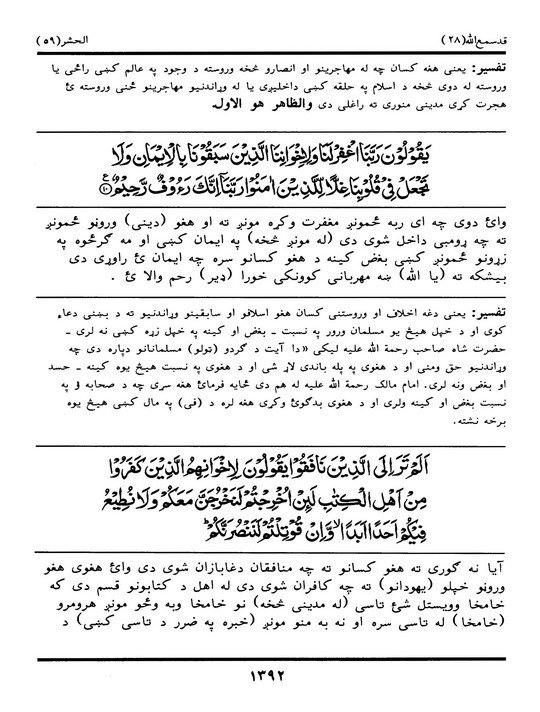 قدسمع الله(٢٨) الحشر(٥٩)
تفسیر: یعنی هغه کسان چه له مهاجرینو او انصارو څخه وروسته د وجود په عالم کښی راځی یا
وروسته له دوی څخه د اسلام په حلقه کښی داخلیږی یا له وړاندنیو مهاجرینو ځنی وروسته ئ
هجرت کړی مدینی منوری ته راغلی دی والظاهر هو الاول.
يَقُوْلُوْنَ رَبَّنَا اغْفِرْ لَنَا وَلِاِخْوَانِنَا الَّذِيْنَ سَبَقُوْنَا بِالْاِيْمَانِ وَلَا
تَجْعَلْ فِيْ قُلُوْبِنَا غِلًّا لِّلَّذِيْنَ اٰمَنُوْا رَبَّنَآ اِنَّكَ رَءُوْفٌ رَّحِيْمٌ ﴿١٠﴾ ع
وائ دوی چه ای ربه ځمونږ مغفرت وکړه مونږ ته او هغو (دینی) وروڼو ځمونږ
ته چه ړومبی داخل شوی دی (له مونږ څخه) په ایمان کښی او مه ګرځوه په
زړونو ځمونږ کښی بغض کینه د هغو کسانو سره چه ایمان ئ راوړی دی
بیشکه ته (یا الله) ښه مهربانی کوونکی خورا (ډیر) رحم والا ئ .
تفسیر: یعنی دغه اخلاف او وروستنی کسان هغو اسلافو او سابقینو وړاندنیو ته د بښنی دعاء
کوی او د خپل هیڅ یو مسلمان ورور په نسبت ـ بغض او کینه په خپل زړه کښی نه لری ـ
حضرت شاه صاحب رحمة الله علیه لیکی «دا آیت د ګردو (ټولو) مسلمانانو دپاره دی چه
وړاندنیو حق ومنی او د هغوی په پله باندی لاړ شی او د هغوی په نسبت هیڅ یوه کینه ـ حسد
او بغض ونه لری. امام مالک رحمة الله علیه له هم دی ځایه فرمائ هغه سړی چه د صحابه ؤ په
نسبت بغض او کینه ولری او د هغوی بدګوئ وکړی هغه لره د (فی) په مال کښی هیڅ یوه
برخه نشته.
اَلَمْ تَرَ اِلَى الَّذِيْنَ نَافَقُوْا يَقُوْلُوْنَ لِاِخْوَانِهِمُ الَّذِيْنَ كَفَرُوْا
مِنْ اَهْلِ الْكِتٰبِ لَئِنْ اُخْرِجْتُمْ لَنَخْرُجَنَّ مَعَكُمْ وَلَا نُطِيْعُ
فِيْكُمْ اَحَدًا اَبَدًا ۙ وَّاِنْ قُوْتِلْتُمْ لَنَنْصُرَنَّكُمْ ؕ
آیا نه ګوری ته هغو کسانو ته چه منافقان دغابازان شوی دی وائ هغوی هغو
وروڼو خپلو (یهودانو) ته چه کافران شوی دی له اهل د کتابونو قسم دی که
خامخا وویستل شئ تاسی (له مدینی څخه) نو خامخا وبه وځو مونږ هرومرو
(خامخا) له تاسی سره او نه به منو مونږ (خبره په ضرر د تاسی کښی) د
١٣٩٢